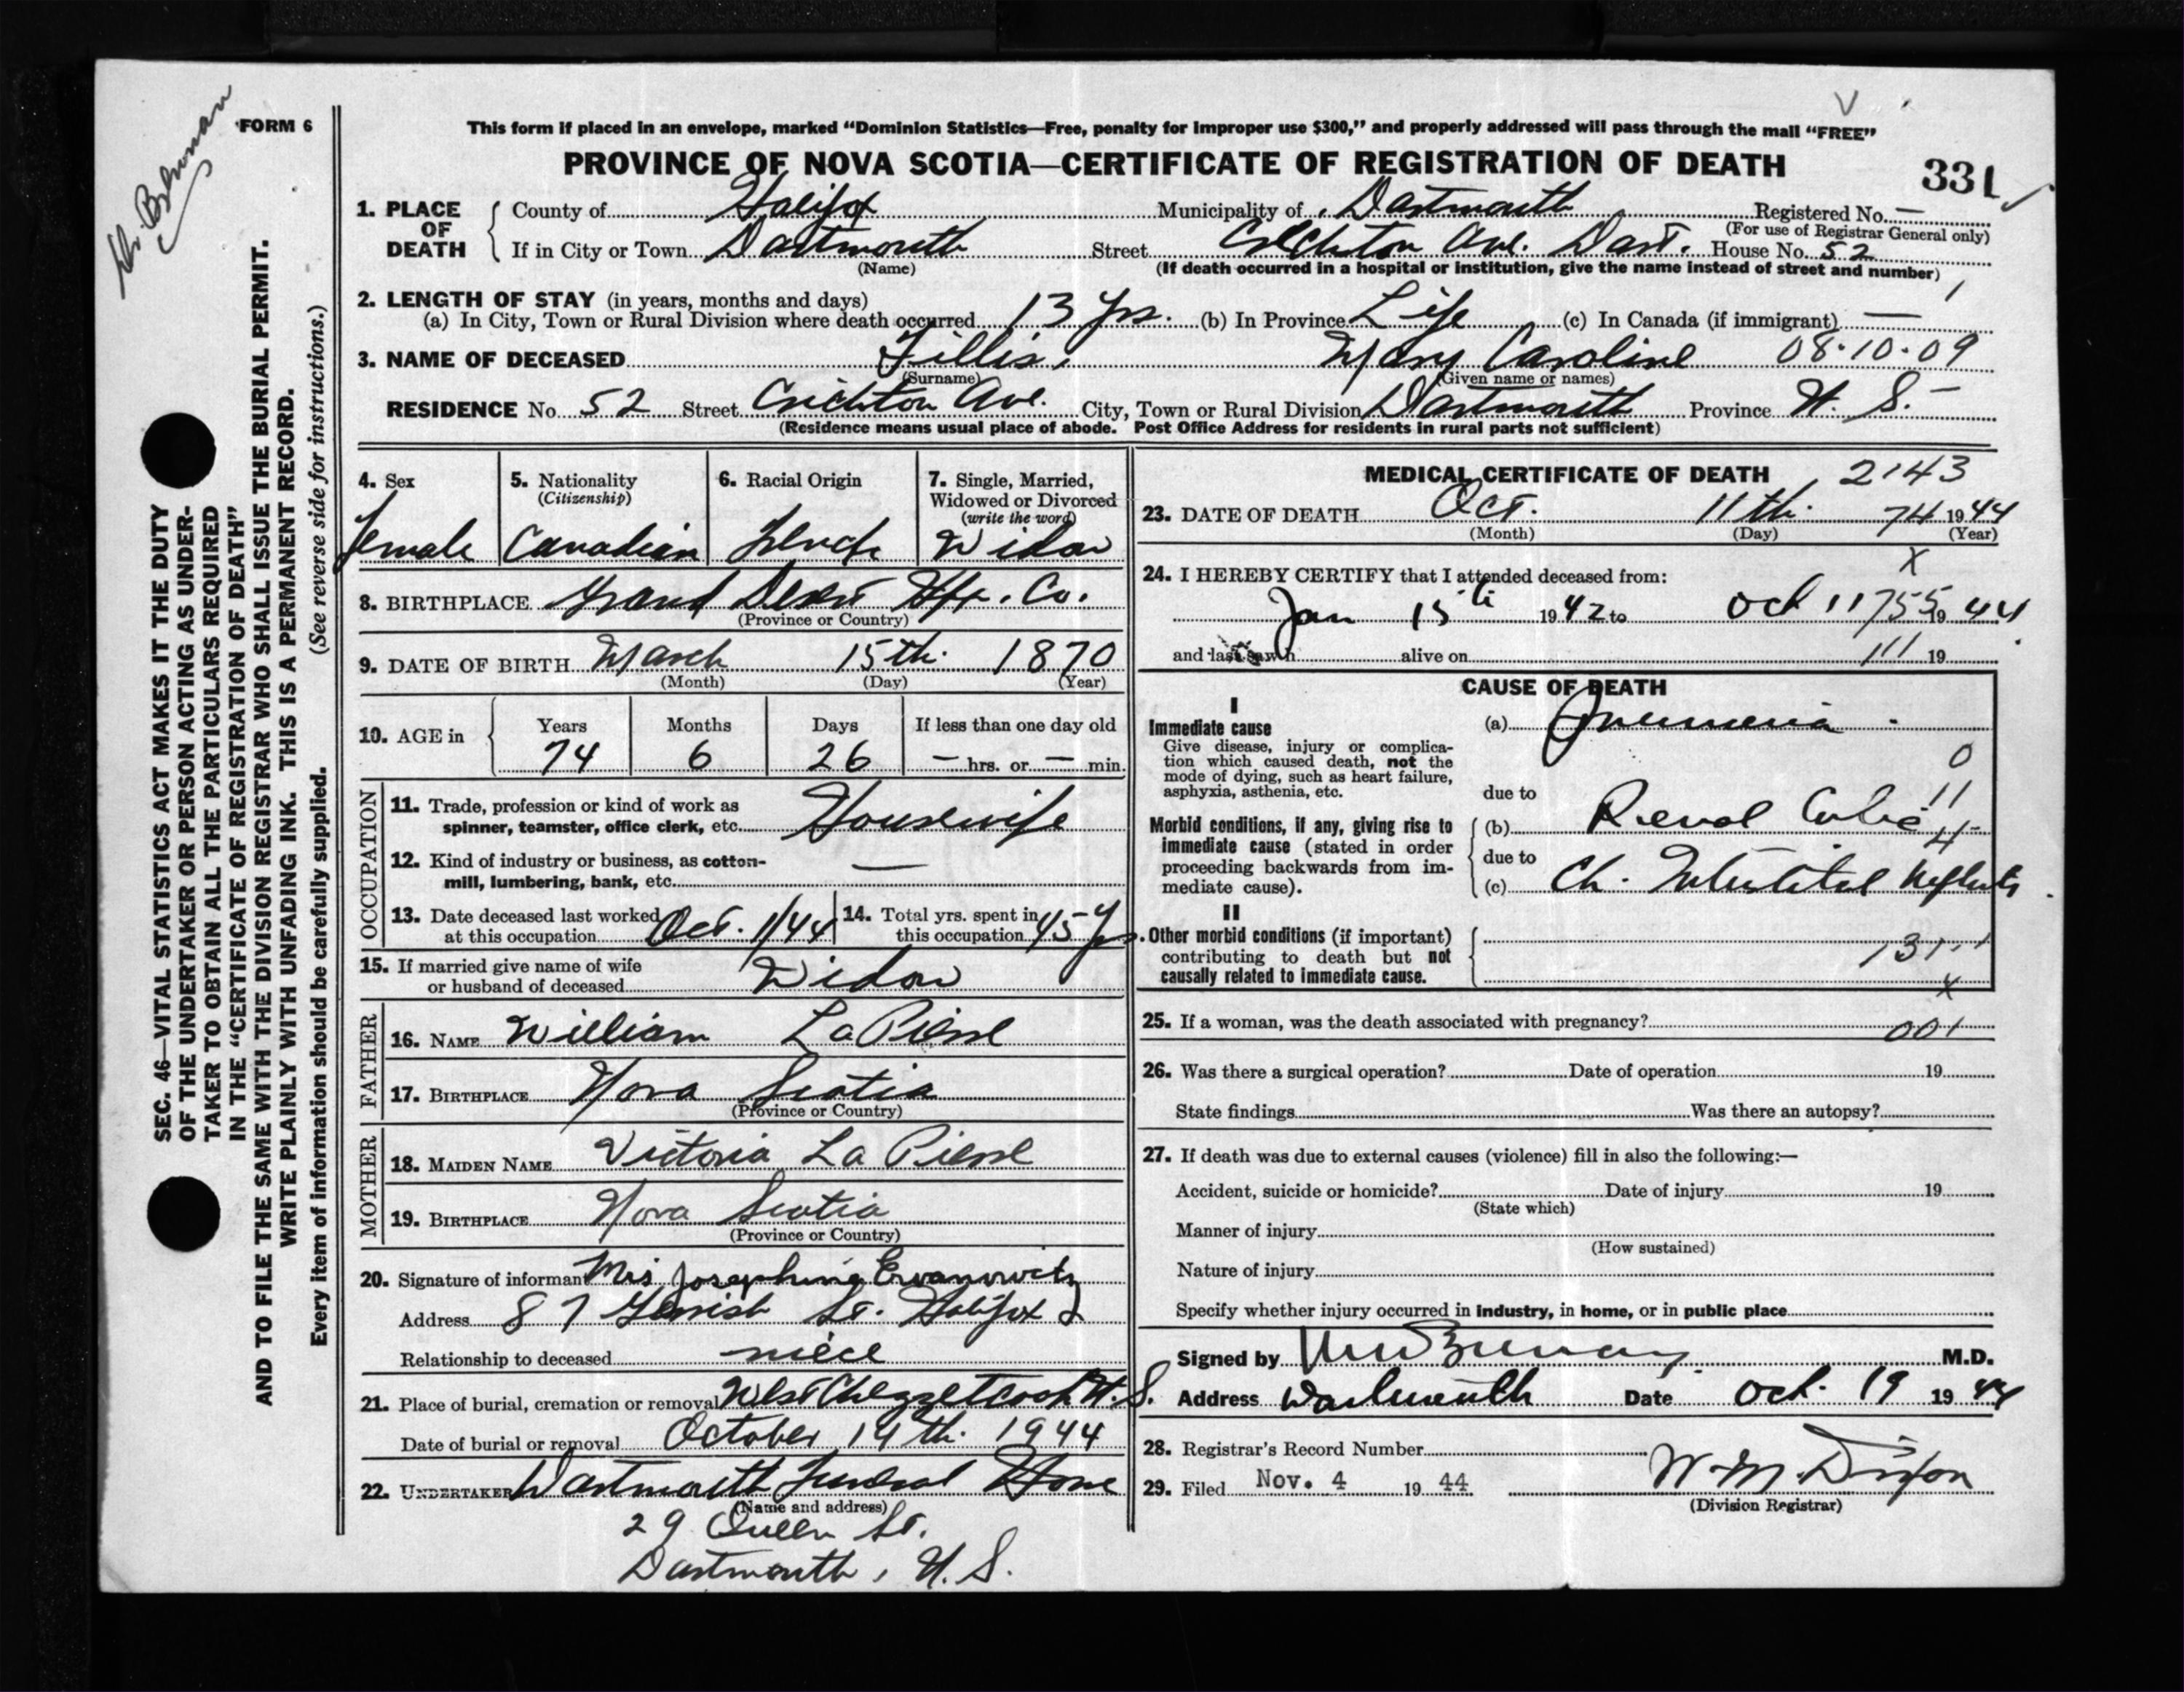 Dr. Brennan
FORM 6
This form if placed in an envelope, marked “Dominion Statistics—Free, penalty for improper use $300,” and properly addressed will pass through the mail “FREE”
PROVINCE OF NOVA SCOTIA—CERTIFICATE OF REGISTRATION OF DEATH
331
1. PLACE OF DEATH
County of Halifax Municipality of Dartmouth Registered No. —
(For use of Registrar General only)
If in City or Town Dartmouth Street Crichton Ave. Dart. House No. 52
(Name) (If death occurred in a hospital or institution, give the name instead of street and number)
2. LENGTH OF STAY (in years, months and days)
(a) In City, Town or Rural Division where death occurred 13 yrs. (b) In Province Life (c) In Canada (if immigrant) —
3. NAME OF DECEASED Fillis, Mary Caroline 08·10·09
(Surname) (Given name or names)
RESIDENCE No. 52 Street Crichton Ave. City, Town or Rural Division Dartmouth Province N. S.
(Residence means usual place of abode. Post Office Address for residents in rural parts not sufficient)
SEC. 46—VITAL STATISTICS ACT MAKES IT THE DUTY
OF THE UNDERTAKER OR PERSON ACTING AS UNDER-
TAKER TO OBTAIN ALL THE PARTICULARS REQUIRED
IN THE “CERTIFICATE OF REGISTRATION OF DEATH”
AND TO FILE THE SAME WITH THE DIVISION REGISTRAR WHO SHALL ISSUE THE BURIAL PERMIT.
WRITE PLAINLY WITH UNFADING INK. THIS IS A PERMANENT RECORD.
Every item of information should be carefully supplied. (See reverse side for instructions.)
4. Sex 5. Nationality 6. Racial Origin 7. Single, Married,
(Citizenship) Widowed or Divorced
(write the word)
Female Canadian French Widow
8. BIRTHPLACE Grand Desert Hfx. Co.
(Province or Country)
9. DATE OF BIRTH March 15th. 1870
(Month) (Day) (Year)
10. AGE in Years Months Days If less than one day old
74 6 26 — hrs. or — min.
OCCUPATION
11. Trade, profession or kind of work as
spinner, teamster, office clerk, etc. Housewife
12. Kind of industry or business, as cotton-
mill, lumbering, bank, etc. —
13. Date deceased last worked 14. Total yrs. spent in
at this occupation Oct. 1/44 this occupation 45 Yrs.
15. If married give name of wife
or husband of deceased Widow
FATHER
16. NAME William La Pierre
17. BIRTHPLACE Nova Scotia
(Province or Country)
MOTHER
18. MAIDEN NAME Victoria La Pierre
19. BIRTHPLACE Nova Scotia
(Province or Country)
20. Signature of informant Mrs Josephine
Address 87 Gerrish St. Halifax
Relationship to deceased niece
21. Place of burial, cremation or removal West Chezzetcook N. S.
Date of burial or removal October 14th. 1944
22. UNDERTAKER Dartmouth Funeral Home
(Name and address)
29 Queen St.
Dartmouth, N. S.
MEDICAL CERTIFICATE OF DEATH 2143
23. DATE OF DEATH Oct. 11th. 74 1944
(Month) (Day) (Year)
x
24. I HEREBY CERTIFY that I attended deceased from:
Jan 15th 1942 to Oct 11 755 1944
and last saw h alive on 111 19
CAUSE OF DEATH
I
Immediate cause (a) Pneumonia
Give disease, injury or complica-
tion which caused death, not the
mode of dying, such as heart failure,
asphyxia, asthenia, etc.
0
due to 11
Morbid conditions, if any, giving rise to
immediate cause (stated in order
proceeding backwards from im-
mediate cause).
(b) Renal Colic 4
due to
(c) Ch. Interstitial Nephritis
II
Other morbid conditions (if important)
contributing to death but not
causally related to immediate cause.
131
x
25. If a woman, was the death associated with pregnancy? 001
26. Was there a surgical operation? Date of operation 19
State findings Was there an autopsy?
27. If death was due to external causes (violence) fill in also the following:—
Accident, suicide or homicide? Date of injury 19
(State which)
Manner of injury
(How sustained)
Nature of injury
Specify whether injury occurred in industry, in home, or in public place
Signed by M.D.
Address Dartmouth Date Oct. 19 1944
28. Registrar's Record Number
29. Filed Nov. 4 19 44 W. M. Dixon
(Division Registrar)